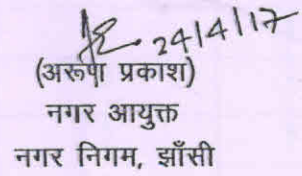 24/4/17
(अरूणा प्रकाश)
नगर आयुक्त
नगर निगम, झाँसी